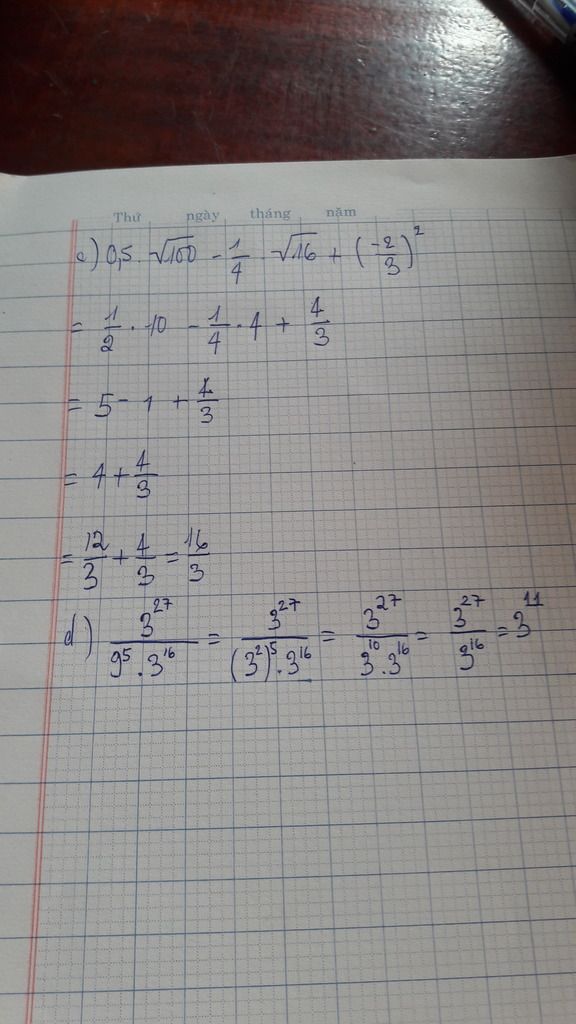 Thứ ngày tháng năm
c) 0,5 . √100 - 1/4 . √16 + (-2/3)²
= 1/2 . 10 - 1/4 . 4 + 4/3
= 5 - 1 + 4/3
= 4 + 4/3
= 12/3 + 4/3 = 16/3
d) 3²⁷/(9⁵ . 3¹⁶) = 3²⁷/((3²)⁵ . 3¹⁶) = 3²⁷/(3¹⁰ . 3¹⁶) = 3²⁷/3¹⁶ = 3¹¹